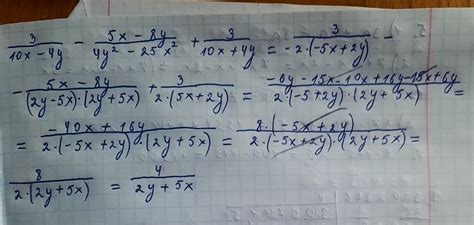 3/(10x - 4y) - (5x - 8y)/(4y² - 25x²) + 3/(10x + 4y) = 3/(-2·(-5x + 2y)) -
- (5x - 8y)/((2y - 5x)·(2y + 5x)) + 3/(2·(5x + 2y)) = (-6y - 15x - 10x + 16y - 15x + 6y)/(2·(-5 + 2y)(2y + 5x)) =
= (-40x + 16y)/(2·(-5x + 2y)·(2y + 5x)) = (8·(-5x + 2y))/(2·(-5x + 2y)·(2y + 5x)) =
8/(2·(2y + 5x)) = 4/(2y + 5x)